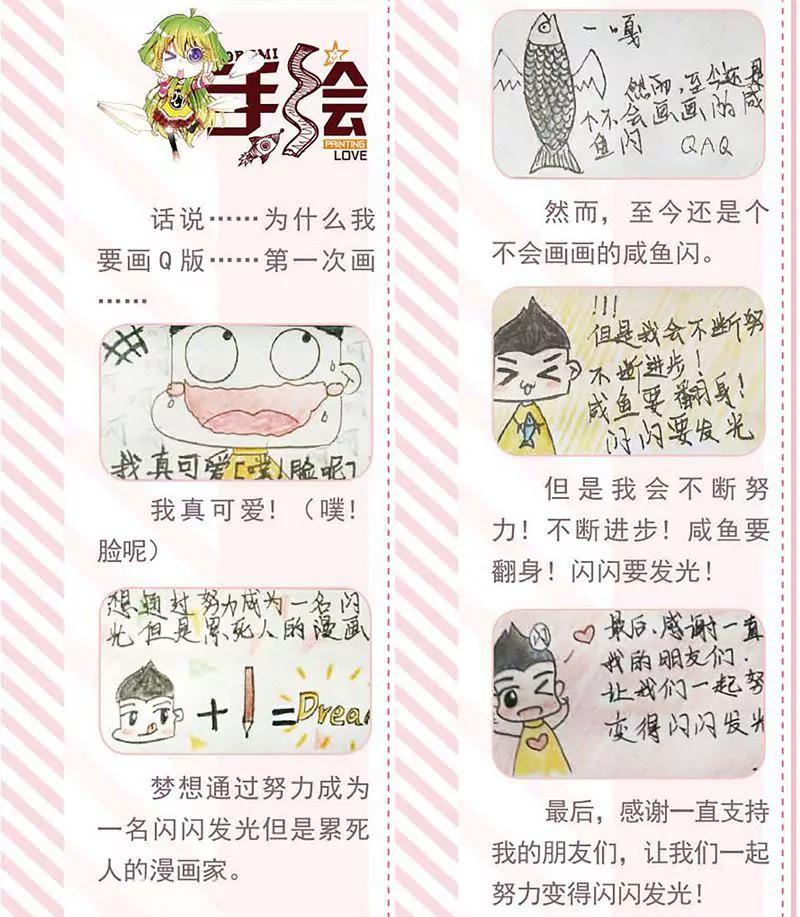 DOREMI
手绘
PAINTING
LOVE
话说……为什么我
要画Q版……第一次画
……
我真可爱[噗!脸呢]
我真可爱！（噗！
脸呢）
想通过努力成为一名闪
光但是累死人的漫画
+ = Drea
梦想通过努力成为
一名闪闪发光但是累死
人的漫画家。
一嘎
然而,至今还是
个不会画画的咸
鱼闪 QAQ
然而，至今还是个
不会画画的咸鱼闪。
!!!
但是我会不断努
不断进步!
咸鱼要翻身!
闪闪要发光
但是我会不断努
力！不断进步！咸鱼要
翻身！闪闪要发光！
闪
最后,感谢一直
我的朋友们.
让我们一起努
变得闪闪发光
最后，感谢一直支持
我的朋友们，让我们一起
努力变得闪闪发光！